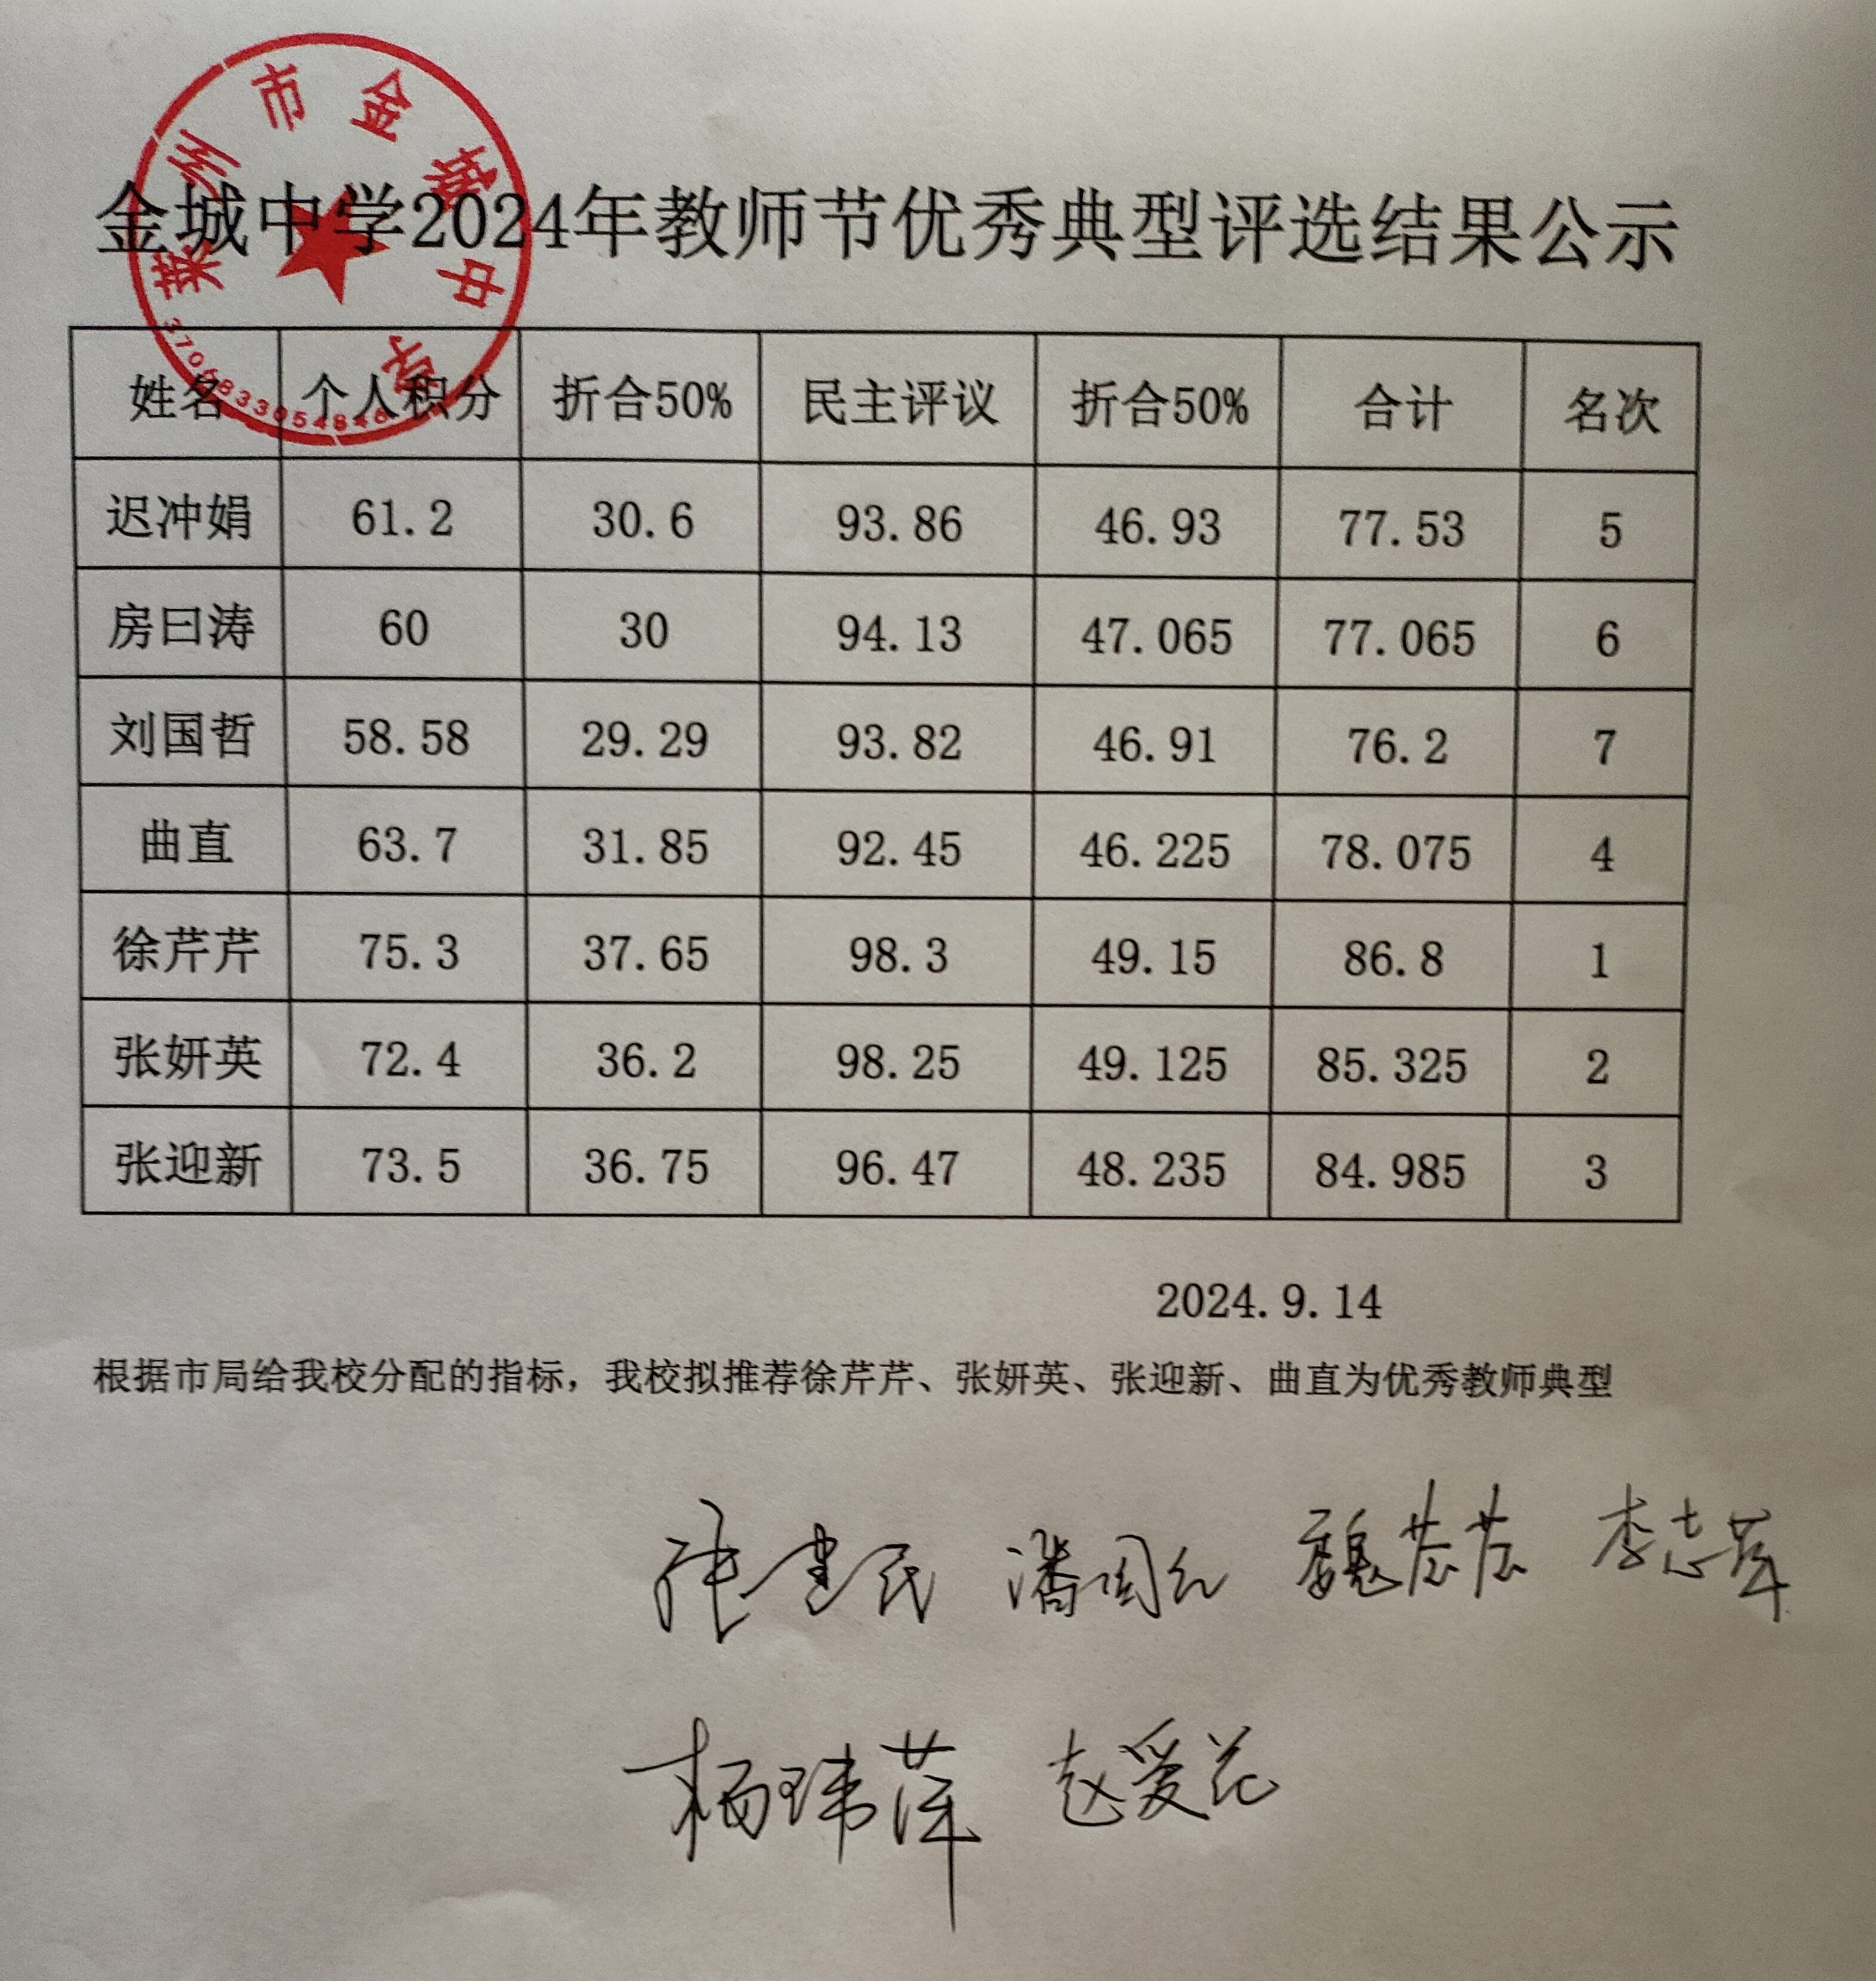 莱州市金城中学
金城中学2024年教师节优秀典型评选结果公示
姓名 个人积分 折合50% 民主评议 折合50% 合计 名次
迟冲娟 61.2 30.6 93.86 46.93 77.53 5
房曰涛 60 30 94.13 47.065 77.065 6
刘国哲 58.58 29.29 93.82 46.91 76.2 7
曲直 63.7 31.85 92.45 46.225 78.075 4
徐芹芹 75.3 37.65 98.3 49.15 86.8 1
张妍英 72.4 36.2 98.25 49.125 85.325 2
张迎新 73.5 36.75 96.47 48.235 84.985 3
2024.9.14
根据市局给我校分配的指标，我校拟推荐徐芹芹、张妍英、张迎新、曲直为优秀教师典型
张建民 魏 李志萍
杨玮萍 赵爱花